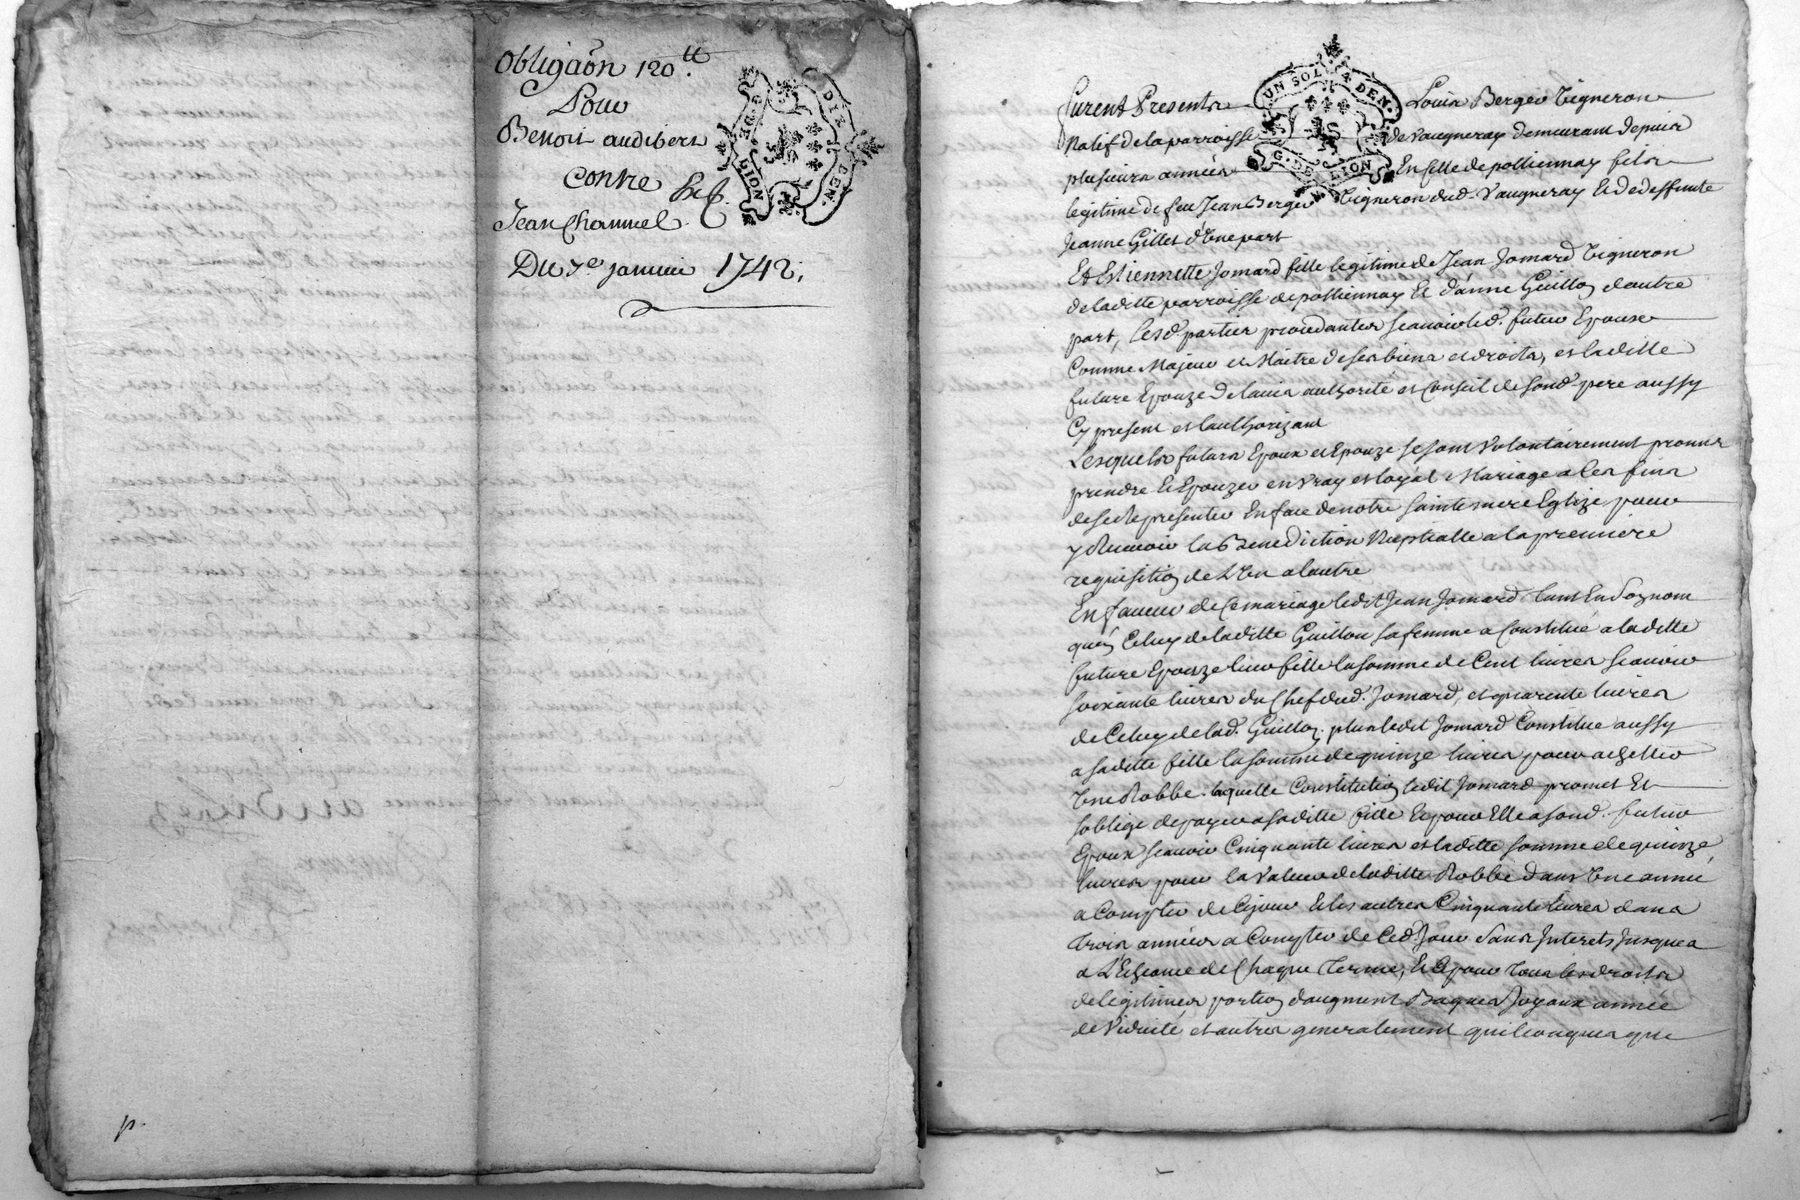 Obligaôn 120.tt
Pour
Benoit audibert
contre
Jean Chammel
Du 7e janvier 1742.
DIX DEN.
G. DE LION
p.
UN SOL 4 DEN.
G. DE LION
Furent Presents Louis Berger vigneron
Natif de la parroisse de vaugneray demeurant depuis
plusieurs années En celle de pollionnay fils
legitime de feu Jean Berger Vigneron dud. Vaugneray Et de deffunte
Jeanne Gillet d'Une part
Et Estiennette Jomard fille legitime de Jean Jomard Vigneron
de laditte parroisse de pollionnay Et d'anne Guillon d'autre
part, Lesd. parties procedantes scavoir led. futur Epoux
Comme Majeur et Maitre de ses biens et droits, et laditte
future Epouze de l'avis authorité et Conseil de sond. pere aussy
Cy present et l'authorizant
Lesquels futurs Epoux et Epouze se sont Volontairement promis
prendre Et Epouzer en vray et loyal Mariage a Ces fins
de se Representer En face de notre Sainte mere Eglize pour
y Recevoir la Benediction Nuptialle a la premiere
requisition de L'Un a l'autre
En faveur de Ce mariage ledit Jean Jomard tant En son nom
qu'en Celuy de laditte Guillon sa femme a Constitué a laditte
future Epouze leur fille la somme de Cent livres scavoir
soixante livres du Chef dud. Jomard, et quarente livres
de Celuy de lad. Guillon, plus ledit Jomard Constitue aussy
a saditte fille la somme de quinze livres pour achetter
Une Robbe. laquelle Constitution ledit Jomard promet Et
s'oblige de payer a saditte fille Et pour Elle a sond. futur
Epoux scavoir Cinquante livres et laditte somme de quinze
livres pour la valeur de laditte Robbe dans Une année
a Compter de Ce jour Et les autres Cinquante livres dans
Trois années a Compter de Ced. Jour sans Interets Jusques
a L'Echeance de Chaque Terme, Et Pour Tous les droits
de legitimes portion d'augment Bagues Joyaux année
de Viduité et autres generalement quelconques que